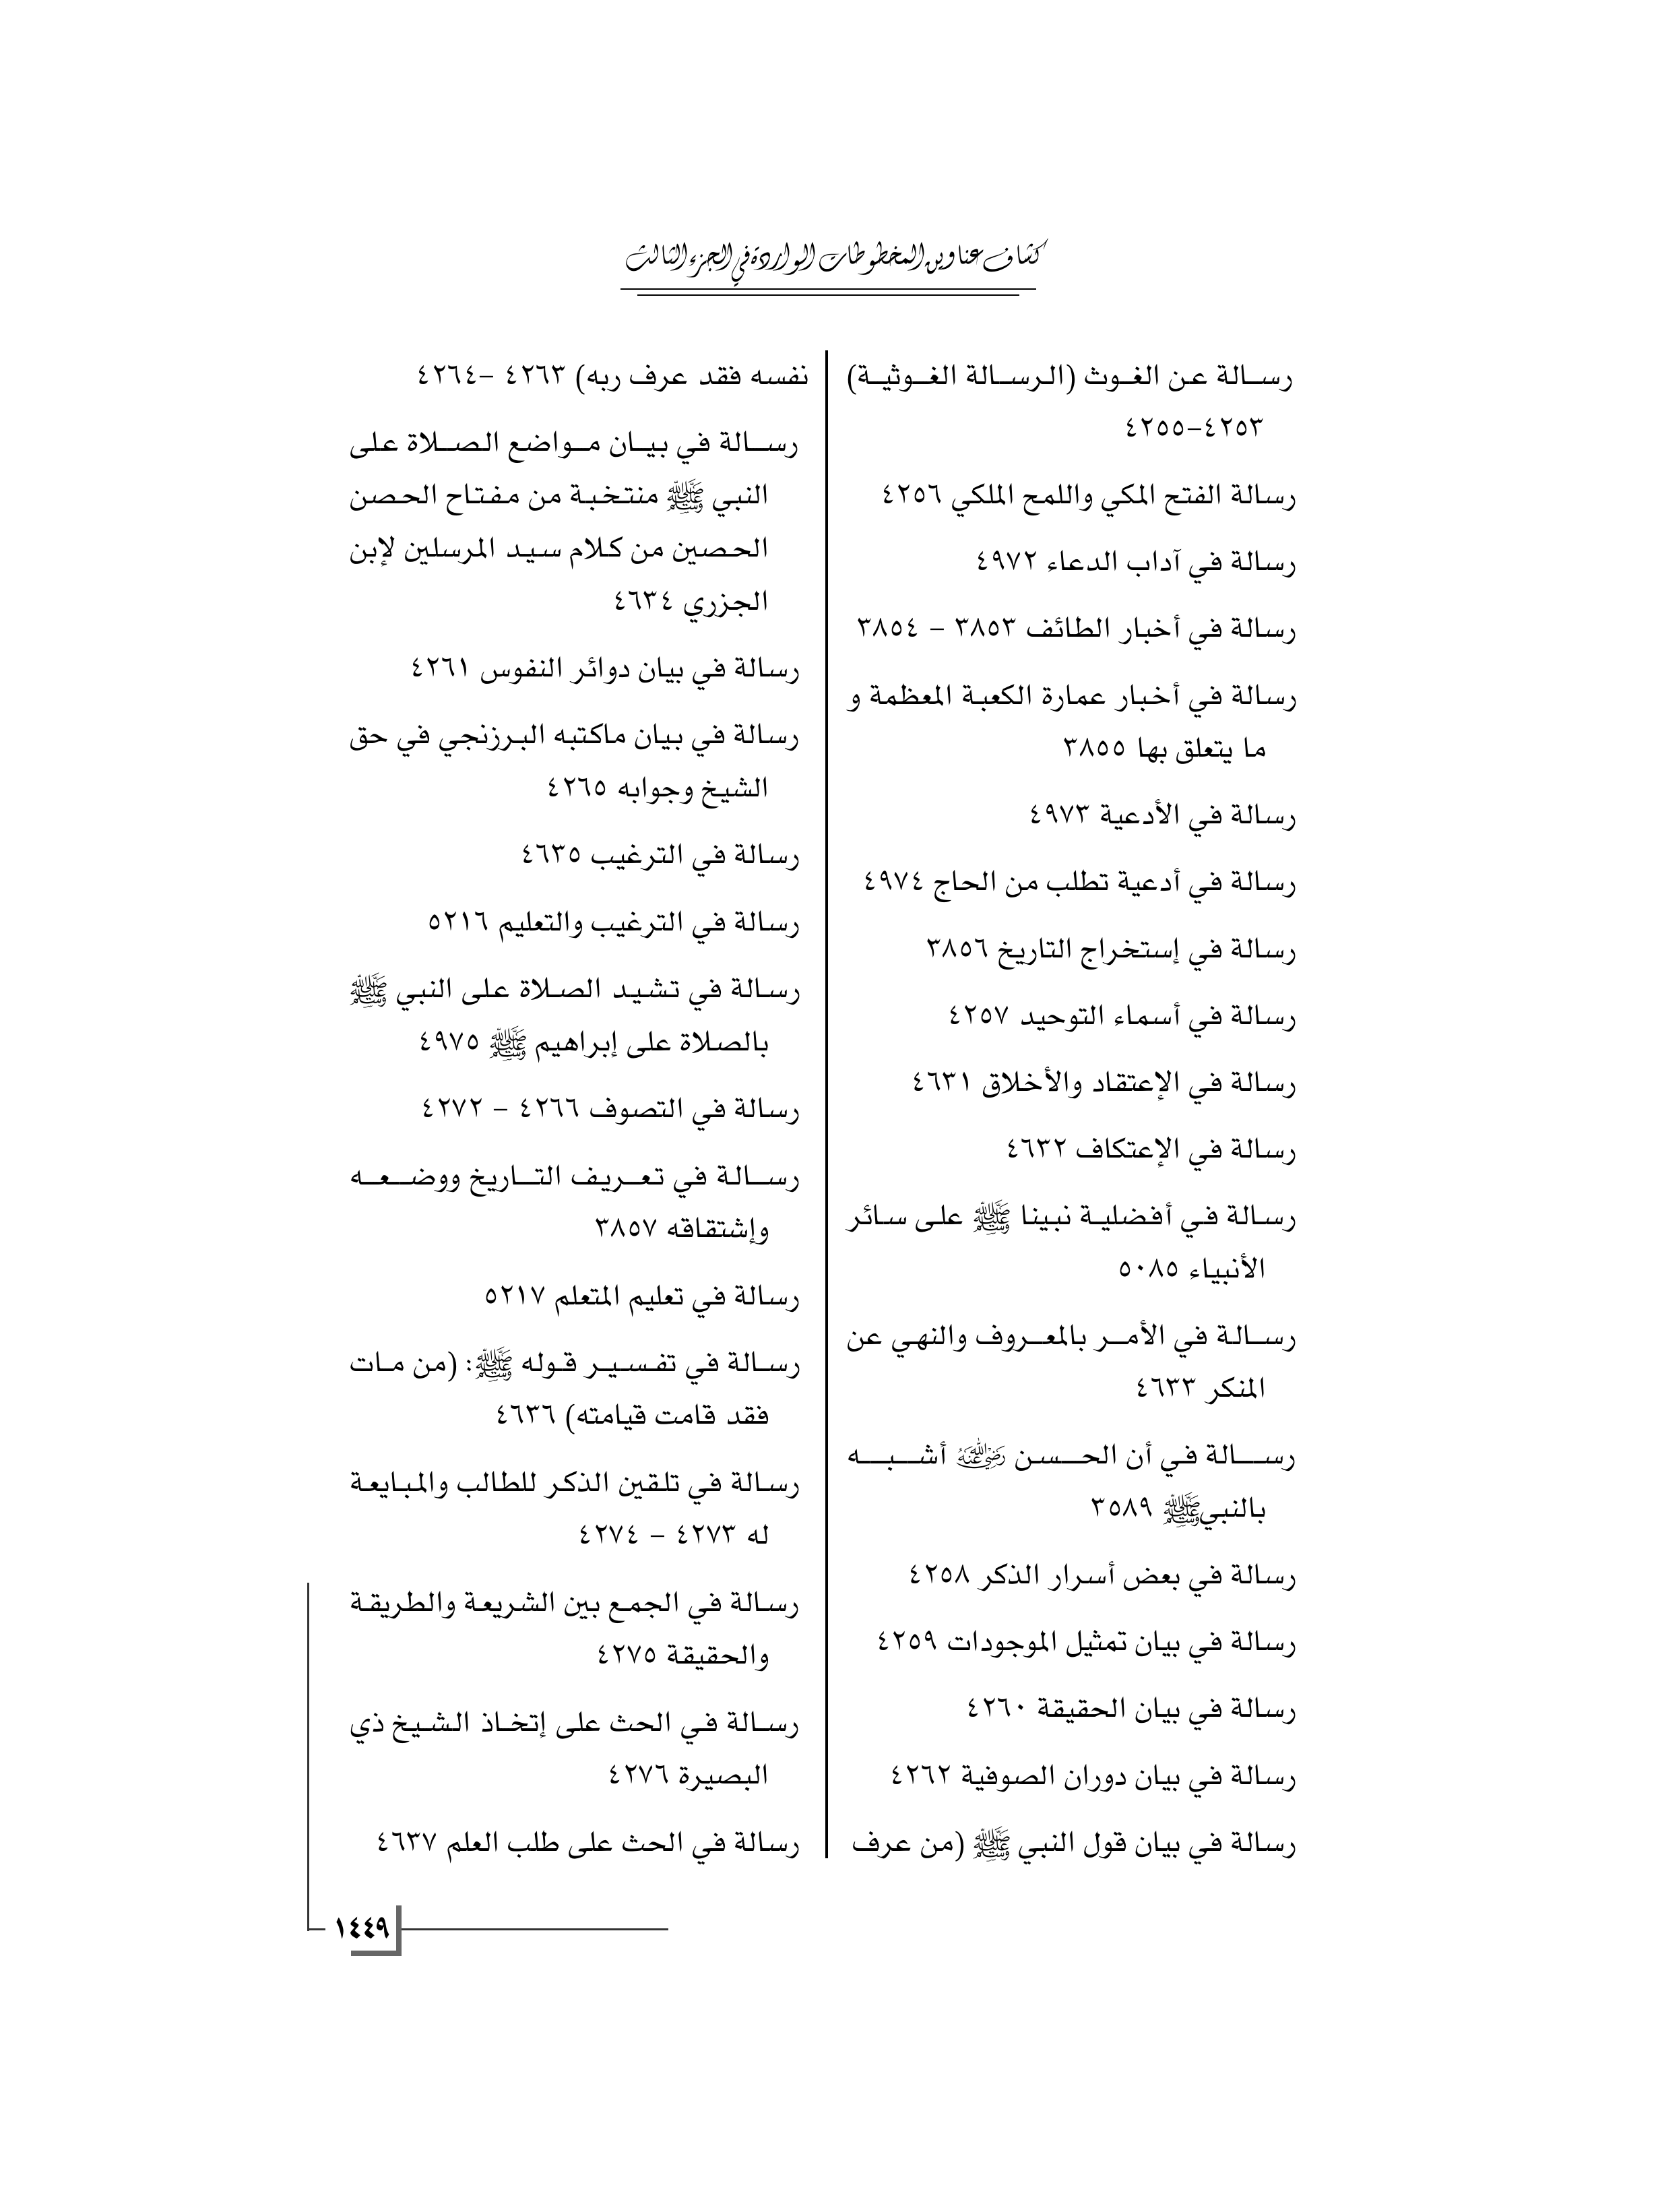 كشاف عناوين المخطوطات الواردة في الجزء الثالث
رسالة عن الغوث (الرسالة الغوثية)
٤٢٥٣–٤٢٥٥
رسالة الفتح المكي واللمح الملكي ٤٢٥٦
رسالة في آداب الدعاء ٤٩٧٢
رسالة في أخبار الطائف ٣٨٥٣ – ٣٨٥٤
رسالة في أخبار عمارة الكعبة المعظمة و
ما يتعلق بها ٣٨٥٥
رسالة في الأدعية ٤٩٧٣
رسالة في أدعية تطلب من الحاج ٤٩٧٤
رسالة في إستخراج التاريخ ٣٨٥٦
رسالة في أسماء التوحيد ٤٢٥٧
رسالة في الإعتقاد والأخلاق ٤٦٣١
رسالة في الإعتكاف ٤٦٣٢
رسالة في أفضلية نبينا ﷺ على سائر
الأنبياء ٥٠٨٥
رسالة في الأمر بالمعروف والنهي عن
المنكر ٤٦٣٣
رسالة في أن الحسن رضي الله عنه أشبه
بالنبيﷺ ٣٥٨٩
رسالة في بعض أسرار الذكر ٤٢٥٨
رسالة في بيان تمثيل الموجودات ٤٢٥٩
رسالة في بيان الحقيقة ٤٢٦٠
رسالة في بيان دوران الصوفية ٤٢٦٢
رسالة في بيان قول النبي ﷺ (من عرف
نفسه فقد عرف ربه) ٤٢٦٣ –٤٢٦٤
رسالة في بيان مواضع الصلاة على
النبي ﷺ منتخبة من مفتاح الحصن
الحصين من كلام سيد المرسلين لإبن
الجزري ٤٦٣٤
رسالة في بيان دوائر النفوس ٤٢٦١
رسالة في بيان ماكتبه البرزنجي في حق
الشيخ وجوابه ٤٢٦٥
رسالة في الترغيب ٤٦٣٥
رسالة في الترغيب والتعليم ٥٢١٦
رسالة في تشيد الصلاة على النبي ﷺ
بالصلاة على إبراهيم ﷺ ٤٩٧٥
رسالة في التصوف ٤٢٦٦ – ٤٢٧٢
رسالة في تعريف التاريخ ووضعه
وإشتقاقه ٣٨٥٧
رسالة في تعليم المتعلم ٥٢١٧
رسالة في تفسير قوله ﷺ: (من مات
فقد قامت قيامته) ٤٦٣٦
رسالة في تلقين الذكر للطالب والمبايعة
له ٤٢٧٣ – ٤٢٧٤
رسالة في الجمع بين الشريعة والطريقة
والحقيقة ٤٢٧٥
رسالة في الحث على إتخاذ الشيخ ذي
البصيرة ٤٢٧٦
رسالة في الحث على طلب العلم ٤٦٣٧
١٤٤٩